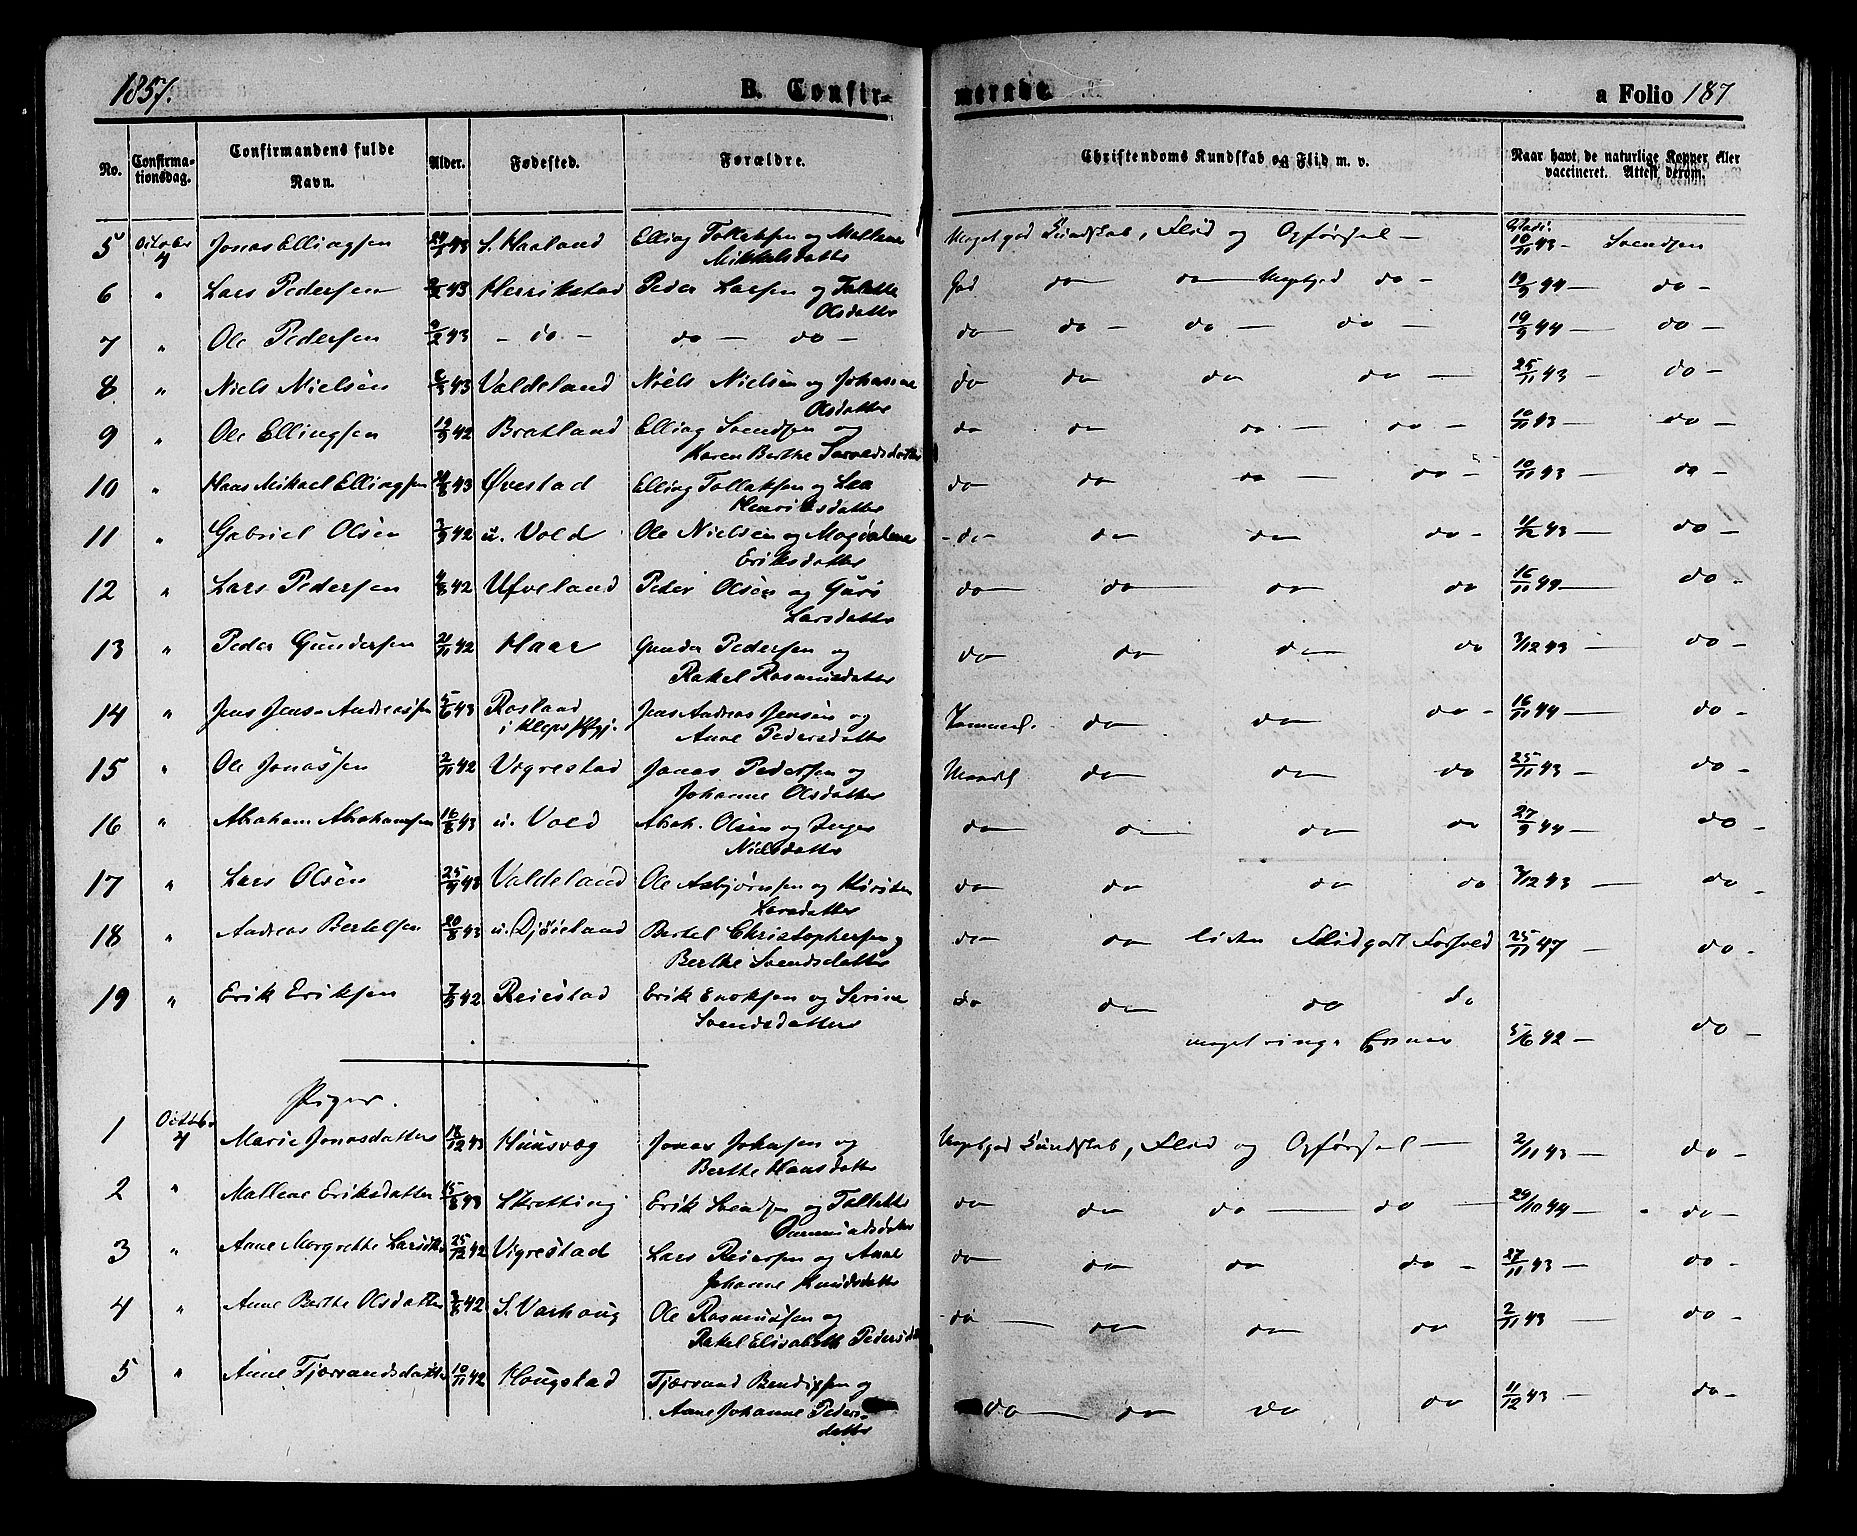 1857. B. Confir- merade. a Folio 187
No. Confirma-tionsdag. Confirmandens fulde Navn. Alder. Fødested. Forældre. Christendoms Kundskab og Flid m. v. Naar havt de naturlige Kopper eller vaccineret. Attest derom.
5 October 4 Jonas Ellingsen 43 S. Haaland Elling Tollefsen og Mallene Mikkelsdatter Megetgod Kundskab, Flid og Opførsel — 10/11 43 — Svendsen
6 " Lars Pedersen 43 Herrikstad Peder Larsen og Talette Olsdatter God do do Megetgod do — 19/9 44 — do —
7 " Ole Pedersen 43 — do — do — do — do do — do — do — 19/9 44 — do —
8 " Niels Nielsen 43 Valdeland Niels Nielsen og Johanne Olsdatter do do do do — 25/11 43 — do —
9 " Ole Ellingsen 19/9 42 Bratland Elling Svendsen og Karen Berthe Tarvaldsdatter do do do — do — 10/11 43 — do —
10 " Hans Mikael Ellingsen 43 Øvestad Elling Tollaksen og Lea Henriksdatter do do do — do — 10/11 43 — do —
11 " Gabriel Olsen 42 u. Vold Ole Nielsen og Magdalene Eriksdatter do do do do — 11/12 43 — do —
12 " Lars Pedersen 42 Ufveland Peder Olsen og Guro Larsdatter do do do do 16/11 44 — do —
13 " Peder Gundersen 21/11 42 Haar Gunder Pedersen og Rakel Rasmusdatter do do do do 7/12 43 — do —
14 " Jens Jens-Andreassen 5/6 43 Rosland i Kleps Prgj. Jens Andreas Jensen og Anne Pedersdatter Temmel. do do do — 16/11 44 — do —
15 " Ole Jonassen 2/11 42 Vigrestad Jonas Pedersen og Johanne Olsdatter Maadel. do do do 25/11 43 — do —
16 " Abraham Abrahamsen 16/8 43 u. Vold Abrah. Olsen og Inger Nielsdatter do do do do 27/9 44 — do —
17 " Lars Olsen 25/9 43 Valdeland Ole Asbjørnsen og Kirsten Larsdatter do do do do 7/12 43 — do —
18 " Andreas Bertelsen 20/8 43 u. Djøieland Bertel Christophersen og Berthe Svendsdatter do do liden Flid godt Forhold 25/11 47 — do —
19 " Erik Eriksen 42 Reiestad Erik Enoksen og Serine Svendsdatter do do do do
meget ringe Evner 5/6 42 — do —
Piger.
1 October 4 Marie Jonasdatter 18/12 43 Huusvæg Jonas Johnsen og Berthe Hansdatter Megetgod Kundskab, Flid og Opførsel — 2/11 43 — do —
2 " Mallene Eriksdatter 15/8 43 Skretting Erik Svendsen og Talette do do do — do — 29/10 44 — do —
3 " Anne Margrethe Larsdtr 25/12 42 Vigrestad Lars Reiersen og Anne Johanne Knudsdatter do do do do — 27/11 43 — do —
4 " Anne Berthe Olsdatter 42 S. Varhoug Ole Rasmussen og Rakel Elisabeth Pedersd do — do do do 2/11 43 — do —
5 " Anne Tjærrandsdatter 10/11 42 Hougstad Tjærrand Bendixsen og Anne Johanne Pedersdatter do — do do do 11/12 43 — do —